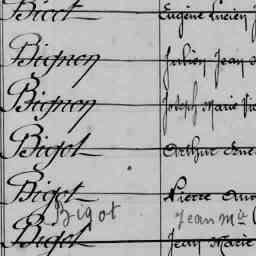 Bicot Eugène Lucien
Bignon Julien Jean
Bignon Joseph Marie
Bigot Arthur
Bigot Pierre
Bigot Jean Mie
Bigot Jean Marie